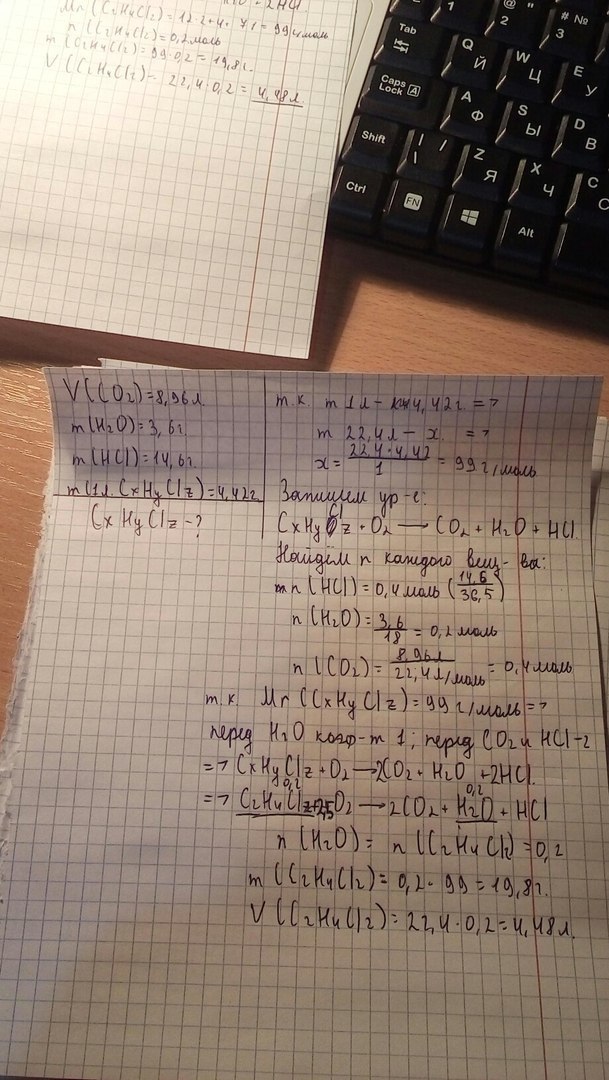 Mr(C2H4Cl2)=12·2+4+71=99 г/моль
n(C2H4Cl2)=0,2моль
m(C2H4Cl2)=99·0,2=19,8г.
V(C2H4Cl2)- 22,4·0,2=4,48л
1
@
2
# №
3
Tab
Q
Й
W
Ц
E
У
Caps Lock A
A
Ф
S
Ы
D
В
Shift
| /
\
Z
Я
X
Ч
C
С
Ctrl
FN
Alt
V(CO2)=8,96л.
m(H2O)=3,6г.
m(HCl)=14,6г.
m(1л. CxHyClz)=4,42г
CxHyClz-?
т.к. m 1л- 4,42г. =>
m 22,4л- x. =>
x= 22,4·4,42/1 = 99г/моль
Запишем ур-е:
CxHyClz+O2→CO2+H2O+HCl
Найдём n каждого вещ-ва:
n(HCl)=0,4моль (14,6/36,5)
n(H2O)= 3,6/18 = 0,2моль
n(CO2)= 8,96л/22,4л/моль = 0,4моль
т.к. Mr(CxHyClz)=99г/моль=>
перед H2O коэф-т 1; перед CO2 и HCl-2
=> CxHyClz+O2→2CO2+H2O+2HCl.
0,2 0,2
=> C2H4Cl2+2,5O2→2CO2+H2O+HCl
n(H2O)= n(C2H4Cl2)=0,2
m(C2H4Cl2)=0,2·99=19,8г.
V(C2H4Cl2)=22,4·0,2=4,48л.